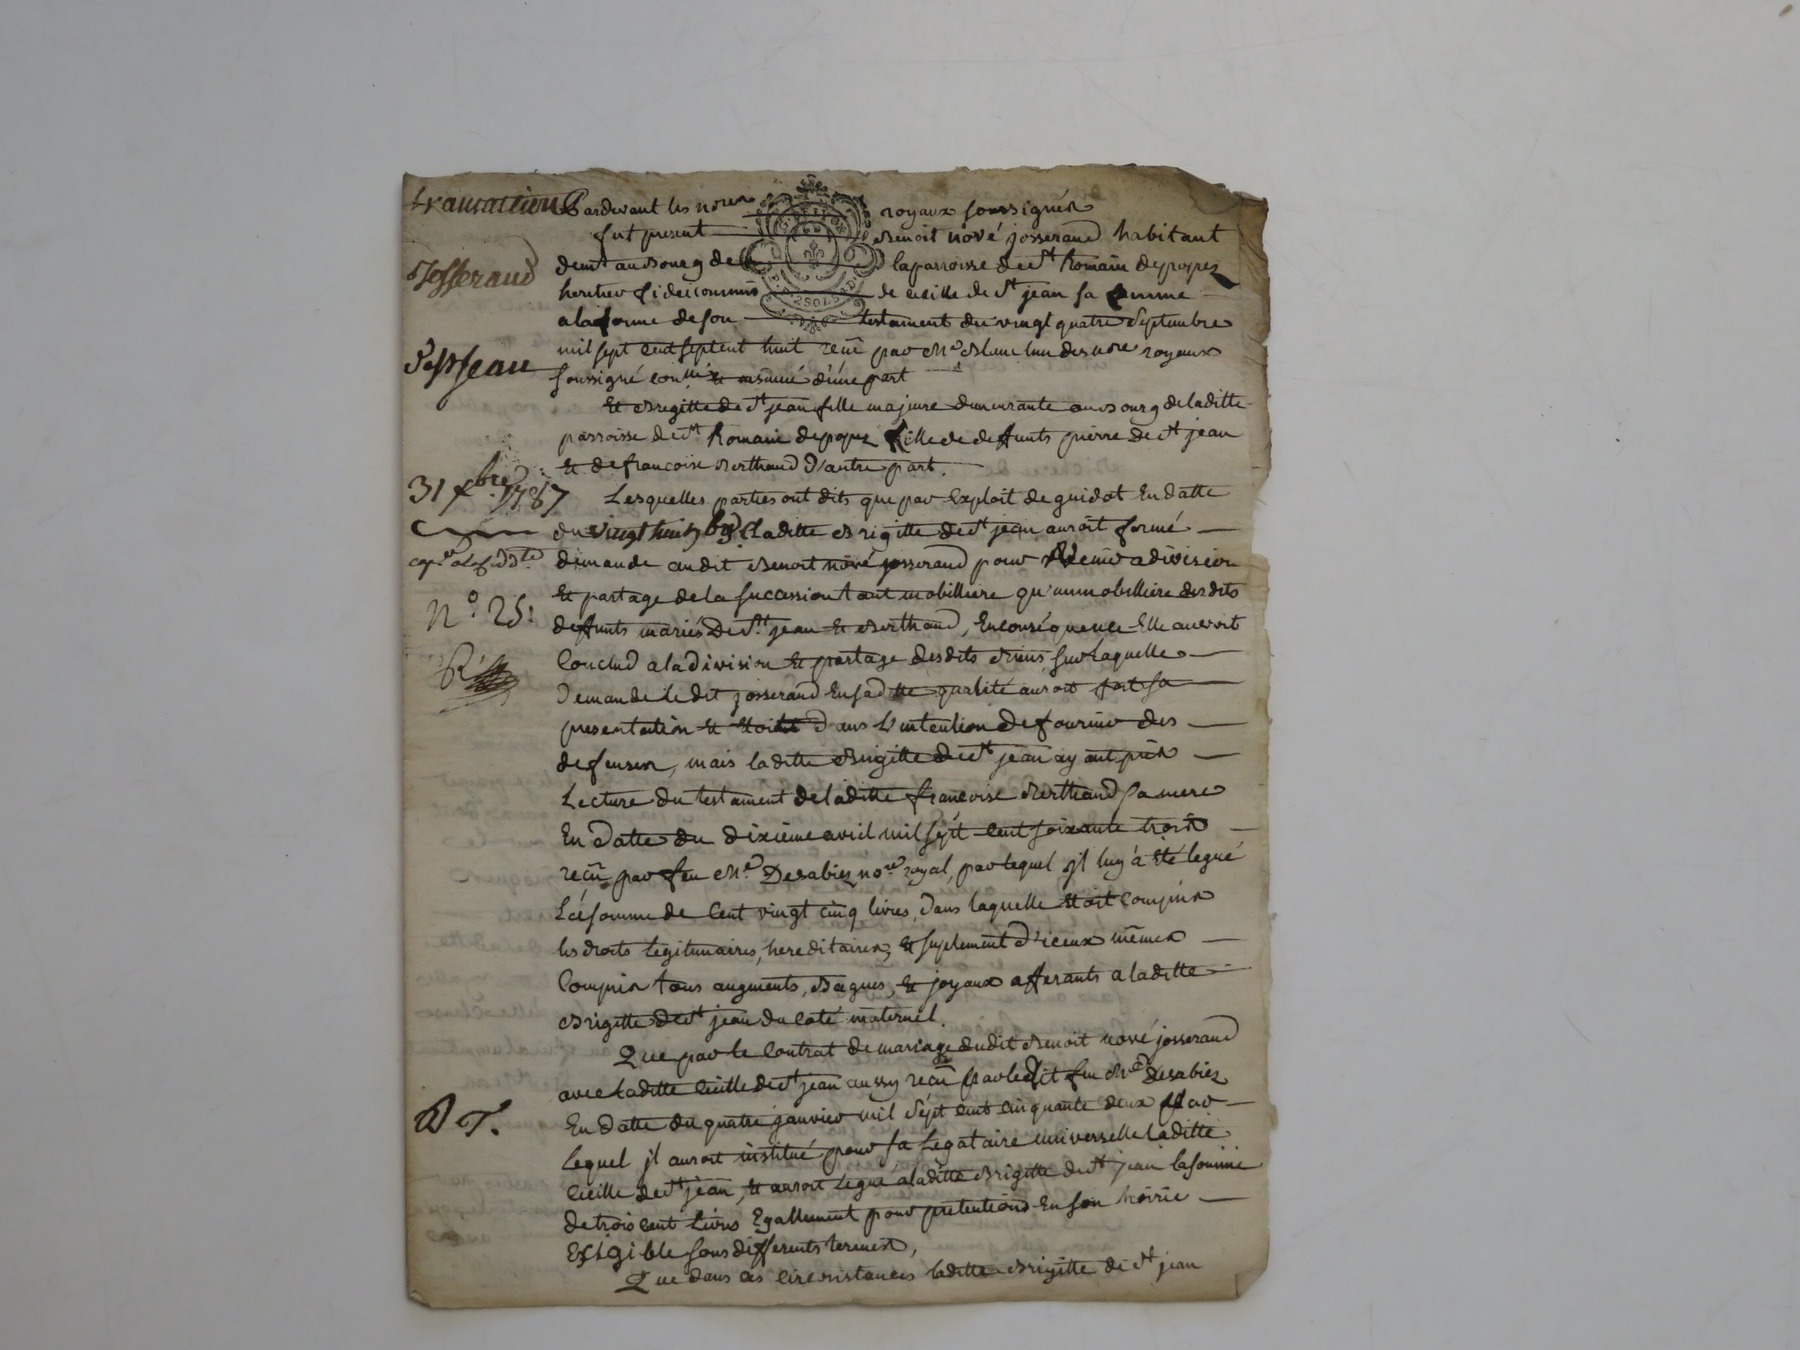 transaction
Josserand
De St Jean
31 Xbre 1787
N.° 25.
D T.
Pardevant les nores royaux soussignés
fut present Benoit nové josserand habitant
demt au Bourg de la parroisse de St Romain de popez
heritier fideicommis de Cecille de St jean sa femme
a la forme de son testament du vingt quatre Septembre
mil sept cent septent huit recû par Me Blanc lun des nores royaux
soussigné d'une part
Et Brigitte de St jean fille majeure demeurante au Bourg de laditte
parroisse de St Romain de popez fille de deffunts pierre de St jean
Et de francoise Berthaud d'autre part.
Lesquelles parties ont dits que par Exploit de guidot En datte
du vingt huit laditte Brigitte de St jean auroit formé
demande audit Benoit nové josserand pour venir a division
Et partage de la succession tant mobilliere qu'immobilliere desdits
deffunts mariés De St jean Et Berthaud, En conséquence Elle auroit
Conclud a la division Et partage desdits Biens sur Laquelle
Demande le dit josserand En sad tte qualité auroit fait sa
presentation Et Etoit Dans L'intention De fournir des
defenses, mais laditte Brigitte de St jean ayant pris
Lecture du testament de laditte francoise Berthaud sa mere
En datte du dixieme avril mil sept cent soixante trois
recû par feu Me Desabiez nore royal, par lequel jl luy a Eté legué
La somme de Cent vingt cinq livres, dans laquelle Etoit Compris
les droits legitimaires, hereditaires, Et suplement d'iceux mêmes
Compris tous augments, Bagues, Et joyaux afferants a laditte
Brigitte de St jean du Coté maternel.
Que par le Contrat de mariage dudit Benoit nové josserand
avec laditte Cecille de St jean aussy recû par ledit feu Me Desabiez
En datte du quatre janvier mil Sept cent cinquante deux par
Lequel jl auroit institué pour sa Legataire universelle laditte
Cecille de St jean, Et auroit Legué a laditte Brigitte de St jean la somme
de trois cent Livres Egallement pour pretentions En son hoirie
Exigible sous differents termes,
Que dans ces circonstances laditte Brigitte de St jean